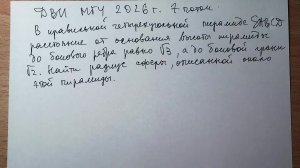 ДВИ МГУ 2026 г. 7 поток.
В правильной четырехугольной пирамиде SABCD
расстояние от основания высоты пирамиды
до бокового ребра равно √3, а до боковой грани
√2. Найти радиус сферы, описанной около
этой пирамиды.